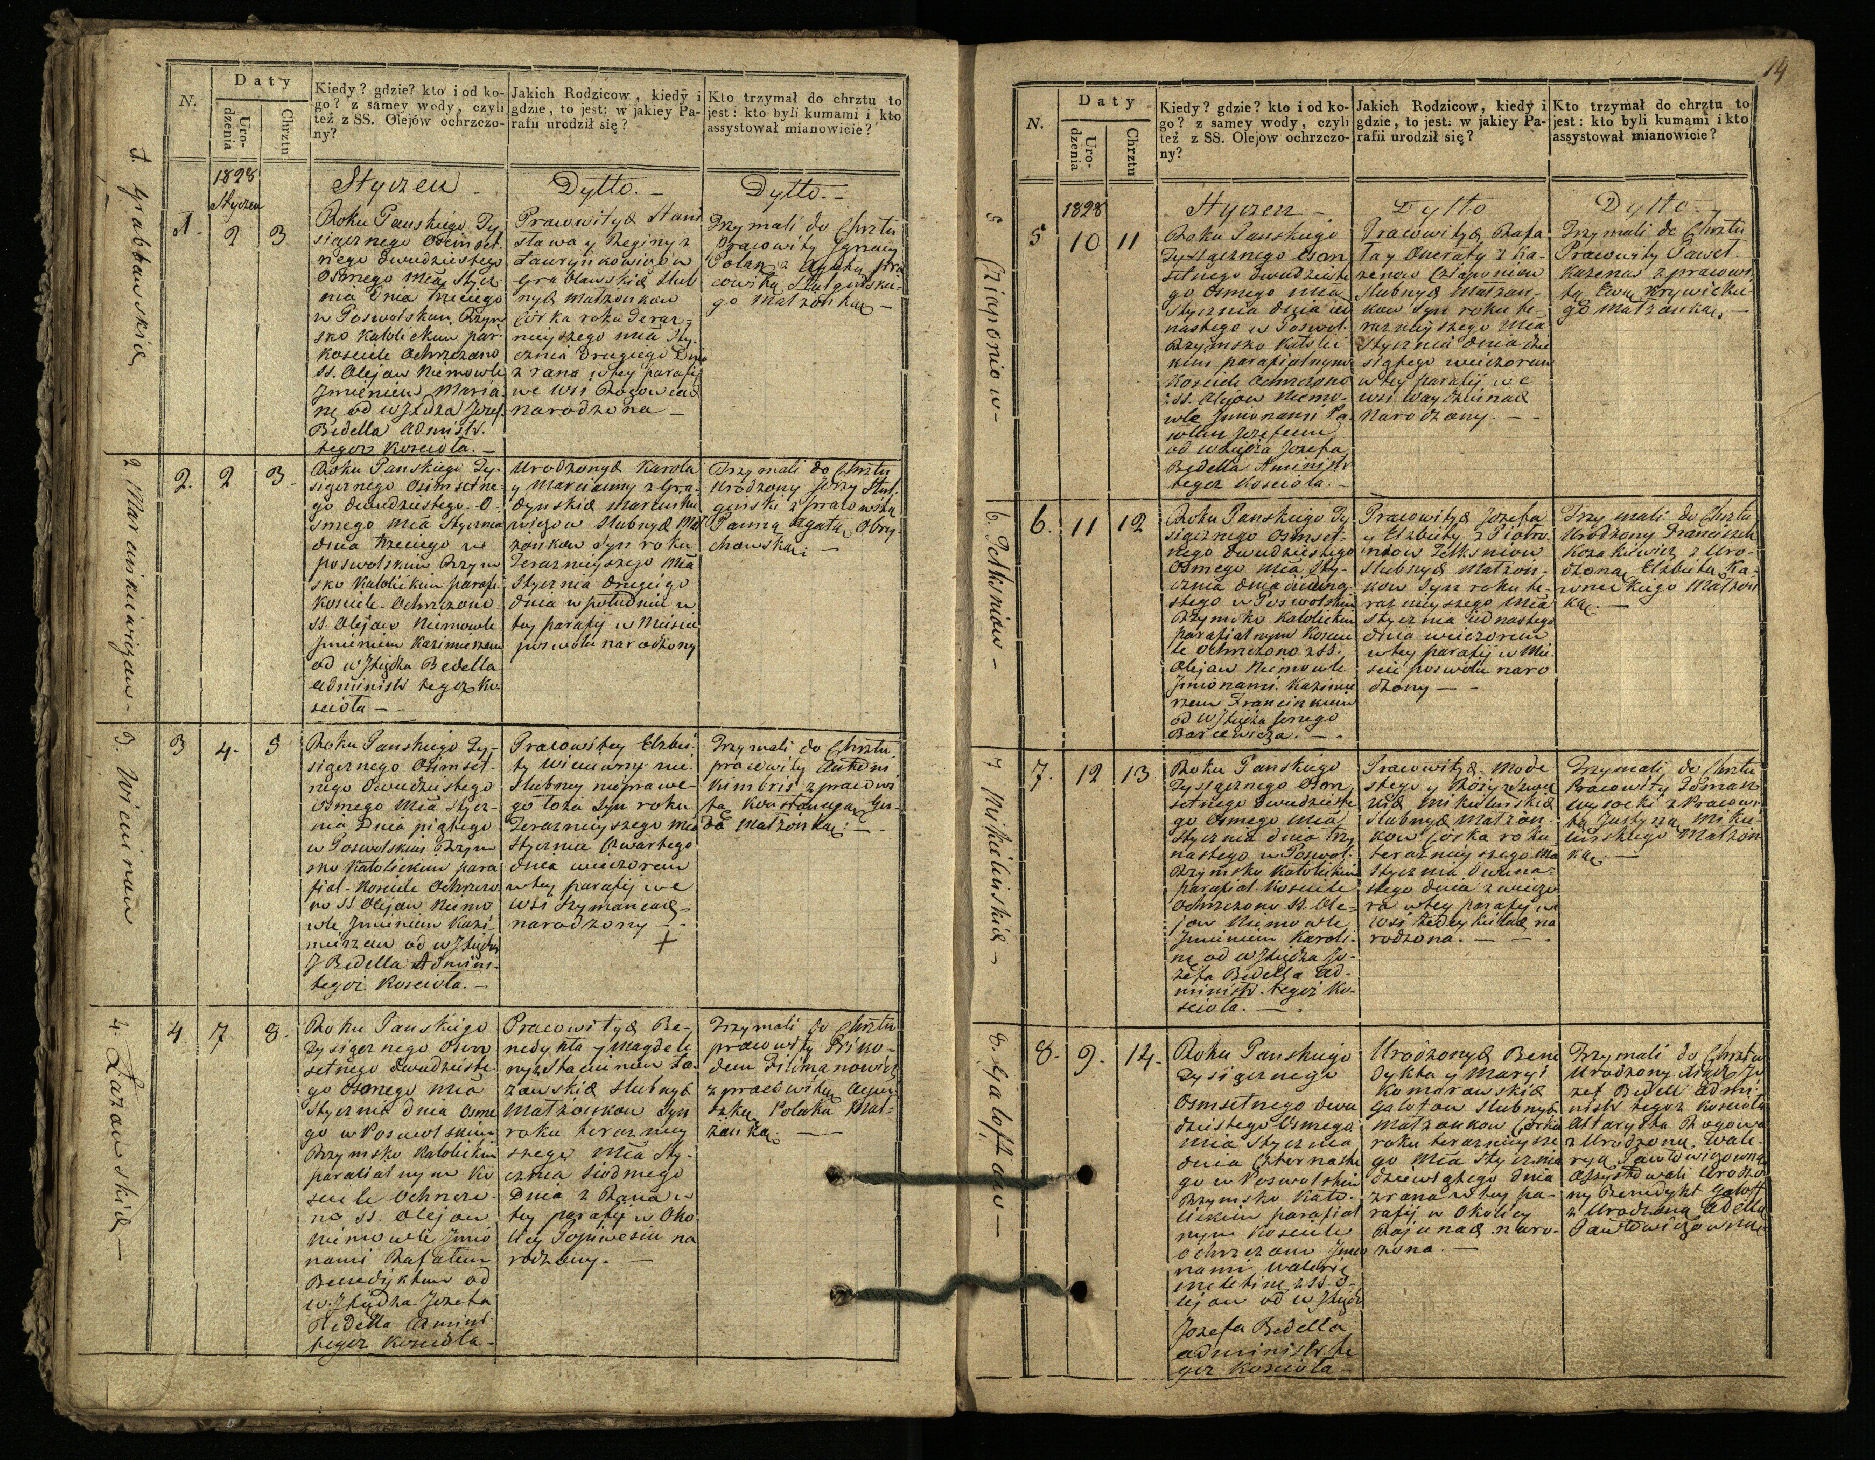 N.
Daty
Uro-
dzenia
Chrztu
Kiedy? gdzie? kto i od ko-
go? z samey wody, czyli
też z SS. Olejów ochrzczo-
ny?
Jakich Rodzicow, kiedy i
gdzie, to jest: w jakiey Pa-
rafii urodził się?
Kto trzymał do chrztu to
jest: kto byli kumami i kto
assystował mianowicie?
1828
Styczen
Styczen
Dytto. —
Dytto. —
1.
2
3
Roku Panskiego Ty-
siącznego Osimset-
nego dwudziestego
Osmego Mca Stycz-
nia Dnia trzeciego
w Poswolskim Rzym
sko Katolickim par.
Kosciele Ochrzczono
SS. Olejow Niemowle
Jmieniem Maria
nę od WJXiędza Jozef.
Bedella Administr.
tegoż Kosciola. —
Pracowitych Stani
slawa y Reginy z
Grabbawskich Slub
nych Małżonkow
Córka roku teraz-
nieyszego mca Sty-
cznia Drugiego Dnia
z rana w tey parafij
we wsi
narodzona —
Trzymali do Chrztu
Pracowity Jgnacy
go Małżonką —
2.
2
3.
Roku Panskiego Ty-
siącznego Osimsetne-
go dwudziestego O-
smego Mca Stycznia
dnia trzeciego w
poswolskim Rzym
sko Katolickim parafi.
Kosciele Ochrzczono
SS. Olejow Niemowle
Jmieniem Kazimierzem
od WJXiędza Bedella
Administr tegoż Ko-
sciola —
Urodzonych Karola
y Marcianny z Gra-
dynskich Marcinki
wiczow Slubnych Mał
żonkow Syn roku
Teraznieyszego Mca
Stycznia drugiego
dnia w południe w
tey parafij w Miescie
poswolu narodzony
Trzymali do Chrztu
Urodzony Jerzy
z Pracowitą
Panną Agatą
3
4.
5
Roku Panskiego Ty-
siącznego Osimset-
nego Dwudziestego
Osmego Mca Stycz-
nia Dnia piątego
w Poswolskim Rzym
sko Katolickim para
fial. Kosciele Ochrzczo
no SS Olejow Niemo
wle Jmieniem Kazi-
mierzem od WJXiędza
J Bedella Admini-
tegoż Kosciola. —
Pracowitey Elzbie-
ty Wicuinny nie
slubney nieprawe-
go łoża Syn roku
Teraznieyszego Mca
Stycznia Czwartego
dnia wieczorem
w tey parafij we
wsi Szymancach
narodzony —
Trzymali do Chrztu
pracowity Antoni
z pracowi
tą Konstancyą
Małżonką: —
4.
7
8.
Roku Panskiego
Tysiącznego Osim
setnego dwudzieste
go Osmego Mca
Stycznia dnia Osme
go w Poswolskim
Rzymsko Katolickim
parafialnym Ko
sciele Ochrzczo-
no SS. Olejow
Niemowle Jmio
nami Rafałem
Benedyktem od
WJXiędza Jozefa
Bedella Admini
tegoż Kosciola —
Pracowitych Be-
nedykta y Magdale
ny
Łazowskich slubnych
Małżonkow Syn
roku teraz niey
szego Mca Sty-
cznia siodmego
Dnia z Rana w
tey parafij w Oko
licy
rodzony. —
Trzymali do Chrztu
pracowity
z pracowitą
Polaka Mał-
żonką. —
14
N.
Daty
Uro-
dzenia
Chrztu
Kiedy? gdzie? kto i od ko-
go? z samey wody, czyli
też z SS. Olejów ochrzczo-
ny?
Jakich Rodzicow, kiedy i
gdzie, to jest: w jakiey Pa-
rafii urodził się?
Kto trzymał do chrztu to
jest: kto byli kumami i kto
assystował mianowicie?
1828
Styczen —
Dytto
Dytto —
5
10
11
Roku Panskiego
Tysiącznego Osim
setnego dwudzieste
go Osmego Mca
Stycznia dnia jede
nastego w Poswol.
Rzymsko Katolic
kim parafialnym
Kosciele Ochrzczono
z SS. Olejow Niemo-
wle Jmionami Pa-
włem Jozefem
od WJXiędza Jozefa
Bedella Administr
tegoż Kosciola. —
Pracowitych Rafa
ła y Onoraty z Ka-
zenow Cziaponiow
slubnych Małżon-
kow Syn roku te-
raznieyszego Mca
Stycznia dnia dzie
siątego wieczorem
w tey parafij we
wsi
Narodzony. —
Trzymali do Chrztu
Pracowity Paweł
Kazenas z pracowi
tą Ewą Krywicku-
go Małżonką. —
6.
11
12
Roku Panskiego Ty
siącznego Osimset-
nego dwudziestego
Osmego Mca Sty-
cznia dnia dwuna-
stego w Poswolskim
Rzymsko Katolickim
parafialnym Koscie
le Ochrzczono z SS.
Olejow Niemowle
Jmionami Kazimie
rzem Franciszkiem
od WJXiędza Jerzego
Barcewicza. —
Pracowitych Jozefa
y Elzbiety z Piotro
wiczow Petkiniow
slubnych Małżon-
kow Syn roku te-
raznieyszego Mca
Stycznia jednastego
dnia wieczorem
w tey parafij w Mie
scie poswolu naro
dzony —
Trzymali do Chrztu
Urodzony Franciszek
Kozakiewicz z Uro-
dzoną Elzbietą
Małżon
ką. —
7.
12
13
Roku Panskiego
Tysiącznego Osim
setnego dwudzieste
go Osmego Mca
Stycznia dnia trzy
nastego w Poswol.
Rzymsko Katolickim
parafial Kosciele
Ochrzczono SS. Ole-
jow Niemowle
Jmieniem Karoli-
nę od WJXiędza Jo-
zefa Bedella Ad-
ministr. tegoż Ko-
sciola. —
Pracowitych Mode
stego y Rozy
Mikulinskich
slubnych Małżon-
kow Córka roku
teraznieyszego Mca
Stycznia dwuna-
stego dnia z wieczo
ra w tey parafij we
wsi
rodzona. —
Trzymali do Chrztu
Pracowity Roman
Wysocki z Pracowi-
tą Justyną Miku-
linskiego Małżon
ką —
8.
9.
14.
Roku Panskiego
Tysiącznego
Osmsetnego dwu
dziestego Osmego
Mca Stycznia
dnia Czternaste
go w Poswolskim
Rzymsko Kato-
lickim parafial
nym Kosciele
Ochrzczono Jmio
nami Waleryę
z SS. O-
lejow od WJXiędza
Jozefa Bedella
administr. te
goż Kosciola —
Urodzonych Bene
dykta y Maryi
Komarowskich
Galoffow Slubnych
Małżonkow Córka
roku teraznieysze
go Mca Stycznia
dziewiątego dnia
z rana w tey pa-
rafij w Okolicy
naro-
zona. —
Trzymali do Chrztu
Urodzony Xiądz Jo
zef Bedell Admi
nistr tegoż Kosciola
z Urodzoną Wale-
ryą Pawłowiczowną
Assystowali Urodzo
ny Benedykt Galoff
z Urodzoną Adellą
Pawłowiczowną
1. Grabbawskich
2 Marcinkiewiczow —
3. Wicuinow
4. Łazowskich —
5 Cziaponiow —
6. Petkiniow —
7 Mikulinskich —
8. Galoffow —